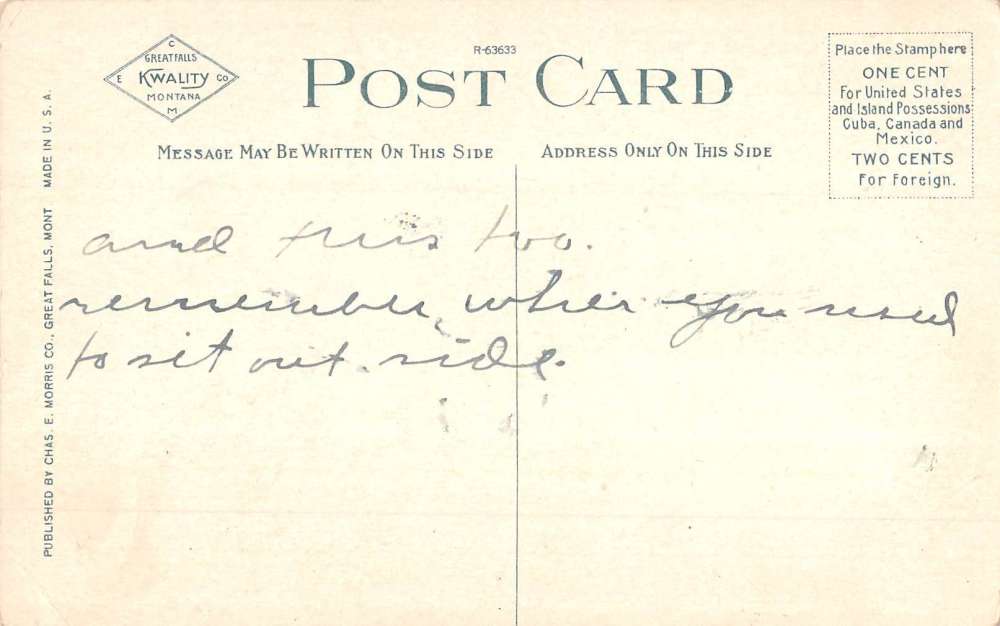 R-63633
C
GREAT FALLS
E KWALITY CO
MONTANA
M
POST CARD
Place the Stamp here
ONE CENT
For United States
and Island Possessions
Cuba, Canada and
Mexico.
TWO CENTS
For Foreign.
MESSAGE MAY BE WRITTEN ON THIS SIDE
ADDRESS ONLY ON THIS SIDE
PUBLISHED BY CHAS. E. MORRIS CO., GREAT FALLS, MONT MADE IN U. S. A.
and this too.
remember when you used
to sit out side.